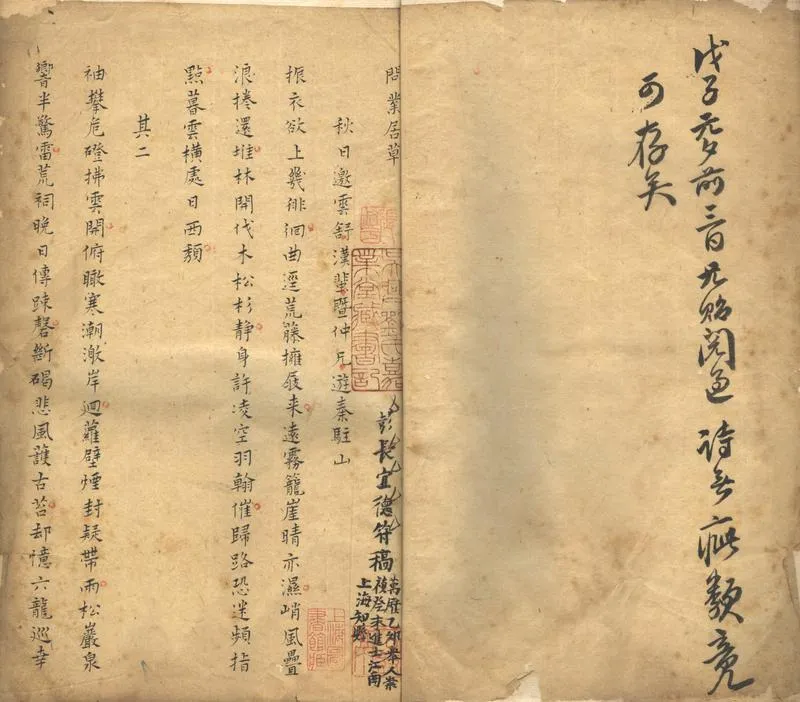 戊子元夕前三日 貽閱過 詩無疵纇竟
可存矣
問業居草
彭長宜德符稿
萬曆乙卯舉人崇
禎癸未進士江南
上海知縣
吳興劉氏嘉
業堂藏書記
秋日邀雲舒漢蜚暨仲兄遊秦駐山
振衣欲上幾徘徊曲逕荒藤擁屐来遠霧籠崖晴亦濕峭風疊
浪捲還堆林開伐木松杉静身許凌空羽翰催歸路恐迷頻指
點暮雲橫處日西頹
其二
袖攀危磴拂雲開俯瞰寒潮潄岸迴蘿壁煙封疑帶雨松巖泉
響半驚雷荒祠晚日傳踈磬斷碣悲風護古苔却憶六龍巡幸